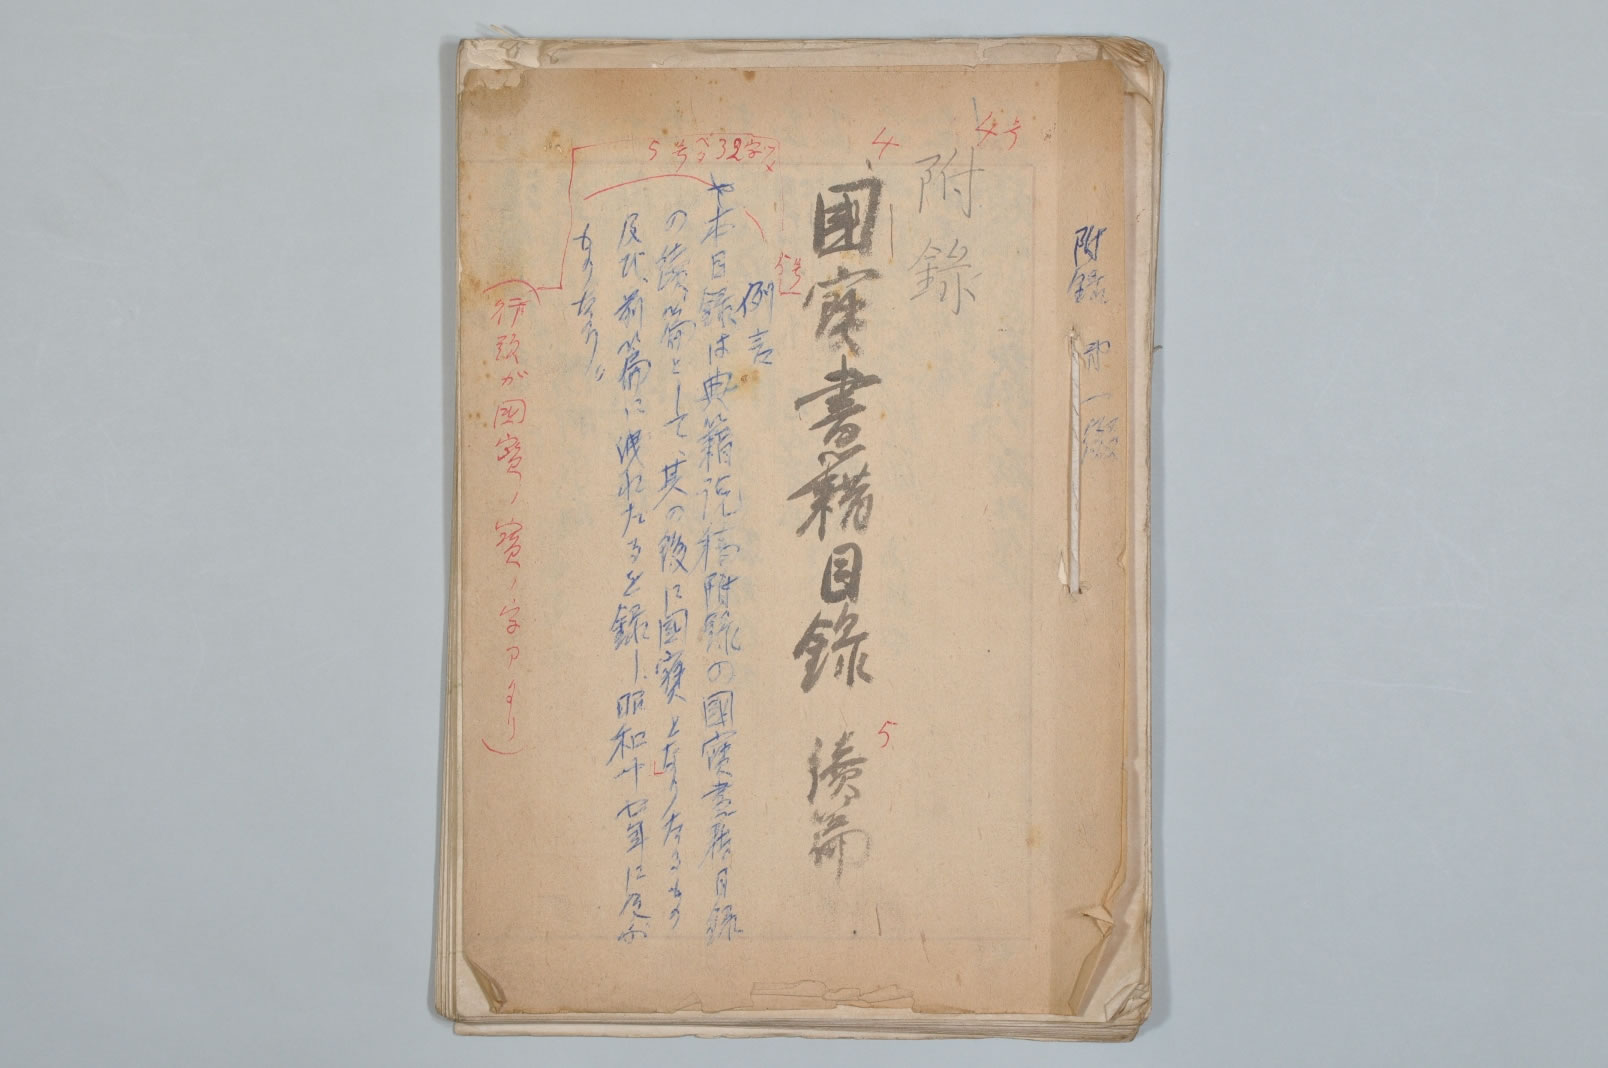 附錄
4号
附錄
4
國寶書籍目錄 續篇
5
5号
例言
5号ベタ32字
本目録は典籍説稿附録の國寶書籍目録
の續篇として、其の後に國寶となりたるもの
及び、前篇に洩れたるを録し、昭和十七年に及ぶ
ものなり。
(行頭が國寶ノ寶ノ字ヨリ)